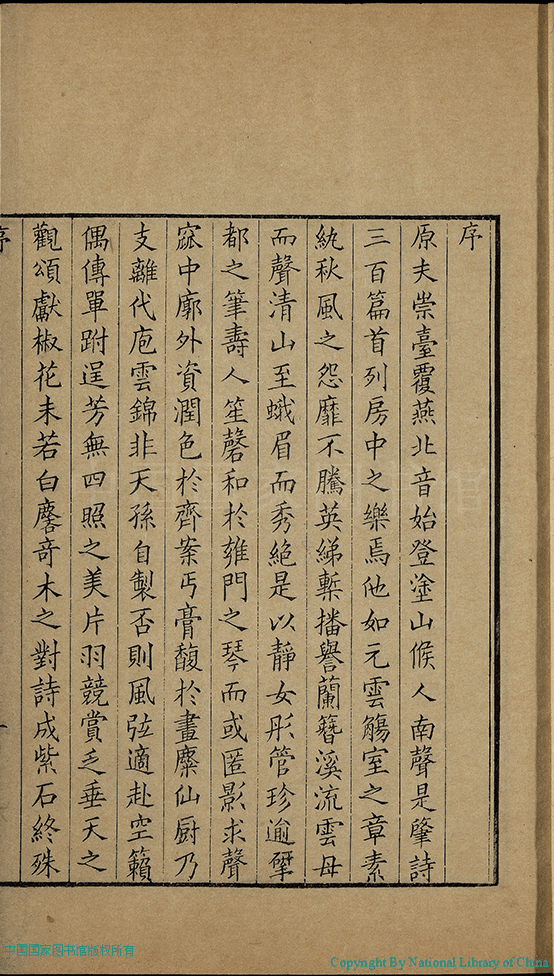 序
原夫崇臺覆燕北音始登塗山候人南聲是肇詩
三百篇首列房中之樂焉他如元雲觴室之章素
紈秋風之怨靡不騰英綈槧播譽蘭簪溪流雲母
而聲清山至蛾眉而秀絶是以靜女彤管珍逾犀
都之筆壽人笙磬和於雍門之琴而或匿影求聲
窾中廓外資潤色於齊案丐膏馥於畫麋仙廚乃
支離代庖雲錦非天孫自製否則風弦適赴空籟
偶傳單跗逞芳無四照之美片羽競賞乏垂天之
觀頌獻椒花未若白麐奇木之對詩成紫石終殊
序
一
中国国家图书馆版权所有
Copyright By National Library of China